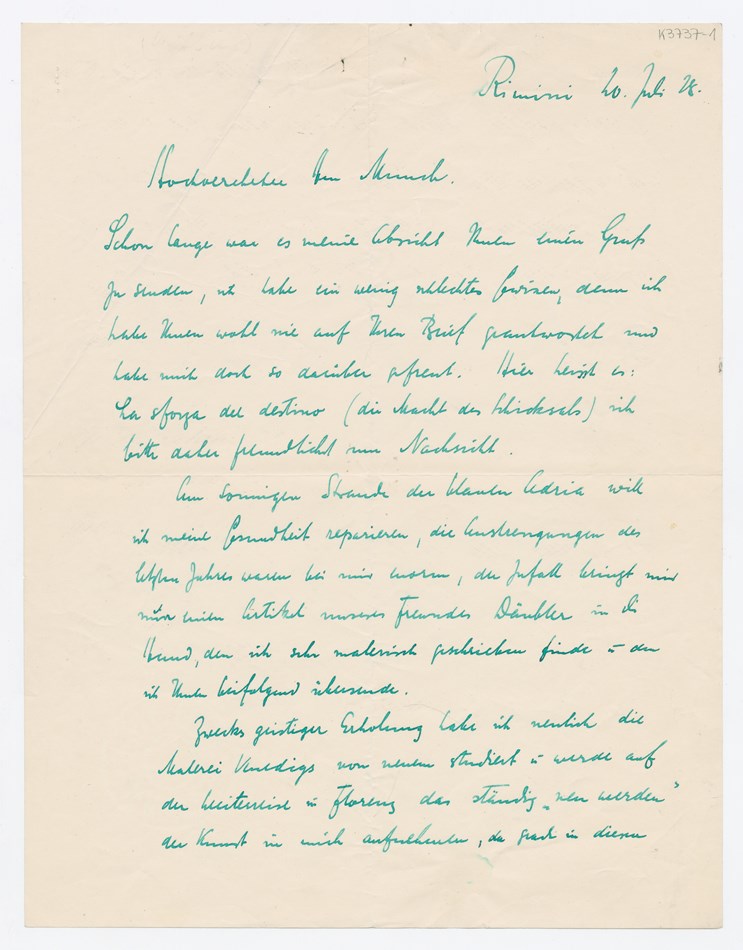 K3737-1
Rimini 20. Juli 28.
Hochverehrter Herr Munch.
Schon lange war es meine Absicht Ihnen einen Gruß
zu senden, ich habe ein wenig schlechtes Gewissen, denn ich
habe Ihnen wohl nie auf Ihren Brief geantwortet und
habe mich doch so darüber gefreut. Hier heisst es:
La sforza del destino (die Macht des Schicksals) ich
bitte daher freundlichst um Nachsicht.
Am sonnigen Strande der blauen Adria will
ich meine Gesundheit reparieren, die Anstrengungen des
letzten Jahres waren bei mir enorm, der Zufall bringt mir
nur einen Artikel unseres Freundes Däubler in die
Hand, den ich sehr malerisch geschrieben finde u den
ich Ihnen beifolgend übersende.
Zwecks geistiger Erholung habe ich neulich die
Malerei Venedigs von neuem studiert u werde auf
der Weiterreise in Florenz das ständig „neu werden"
der Kunst in mich aufnehmen, da grade in diesen